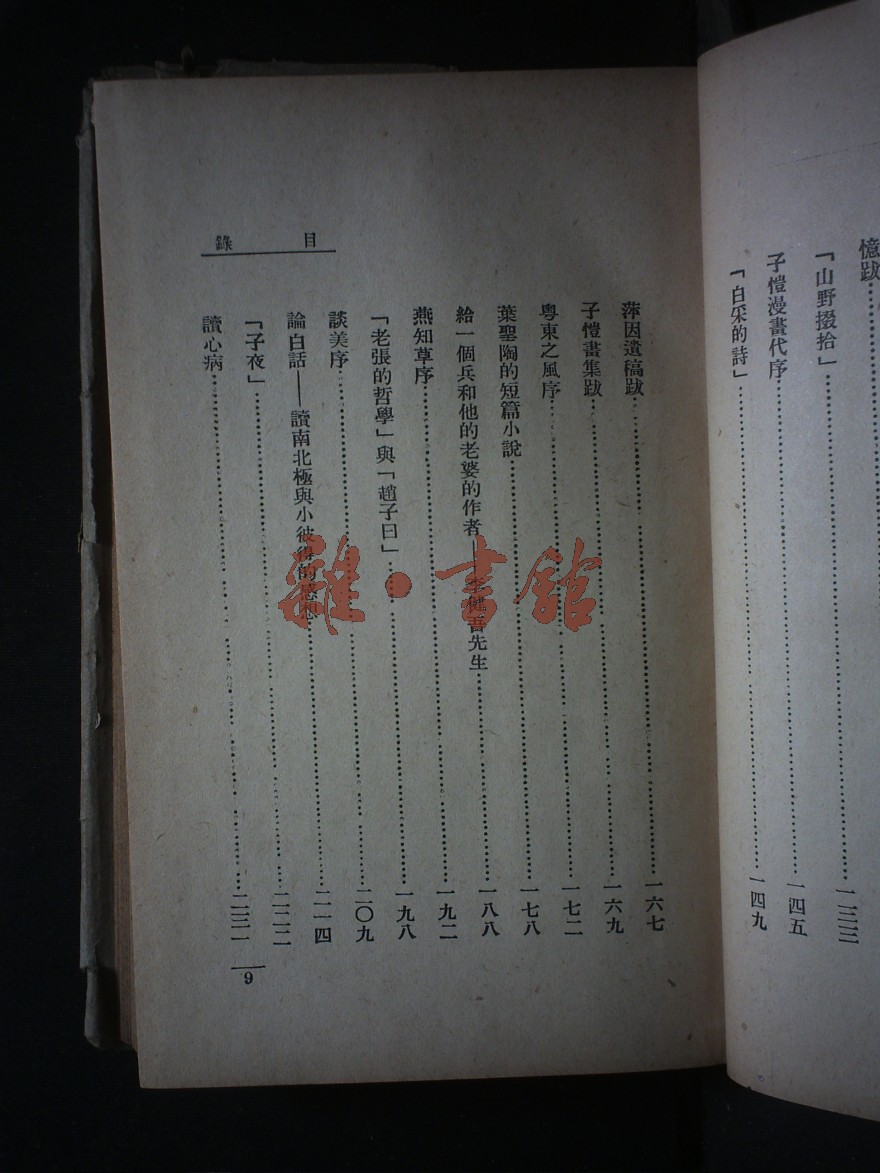 憶跋
「山野掇拾」……一三三
子愷漫畫代序……一四五
「白采的詩」……一四九
目錄
萍因遺稿跋……一六七
子愷畫集跋……一六九
粵東之風序……一七二
葉聖陶的短篇小說……一七八
給一個兵和他的老婆的作者——李健吾先生……一八八
燕知草序……一九二
「老張的哲學」與「趙子曰」……一九八
談美序……二〇九
論白話——讀南北極與小彼得的感想……二一四
「子夜」……二二二
讀心病……二三一
9
雜·書館